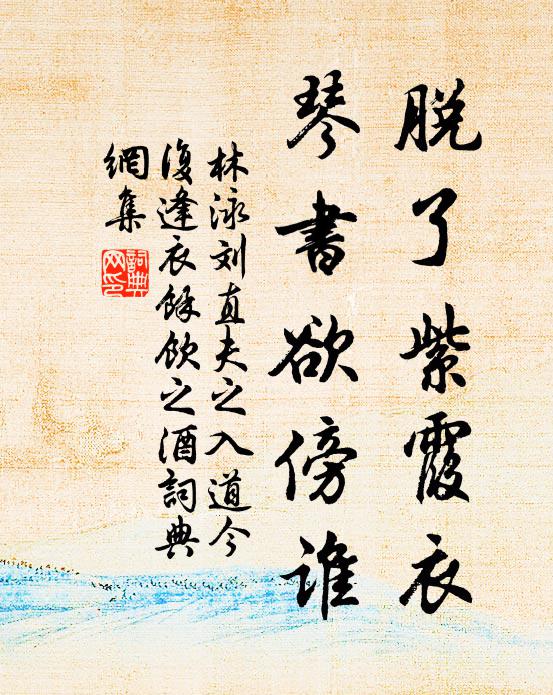 脱了紫霞衣
琴書欲傍谁
林泳刘直夫之入道今
復逢衣餘飲之酒詞典
網集
詞典
网印